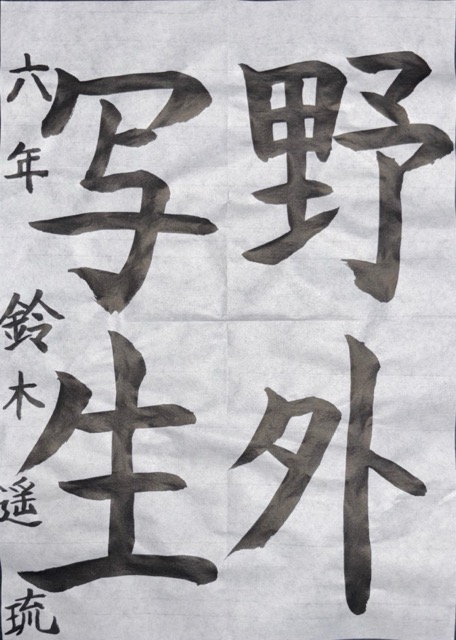 野外
写生
六年 鈴木遥琉